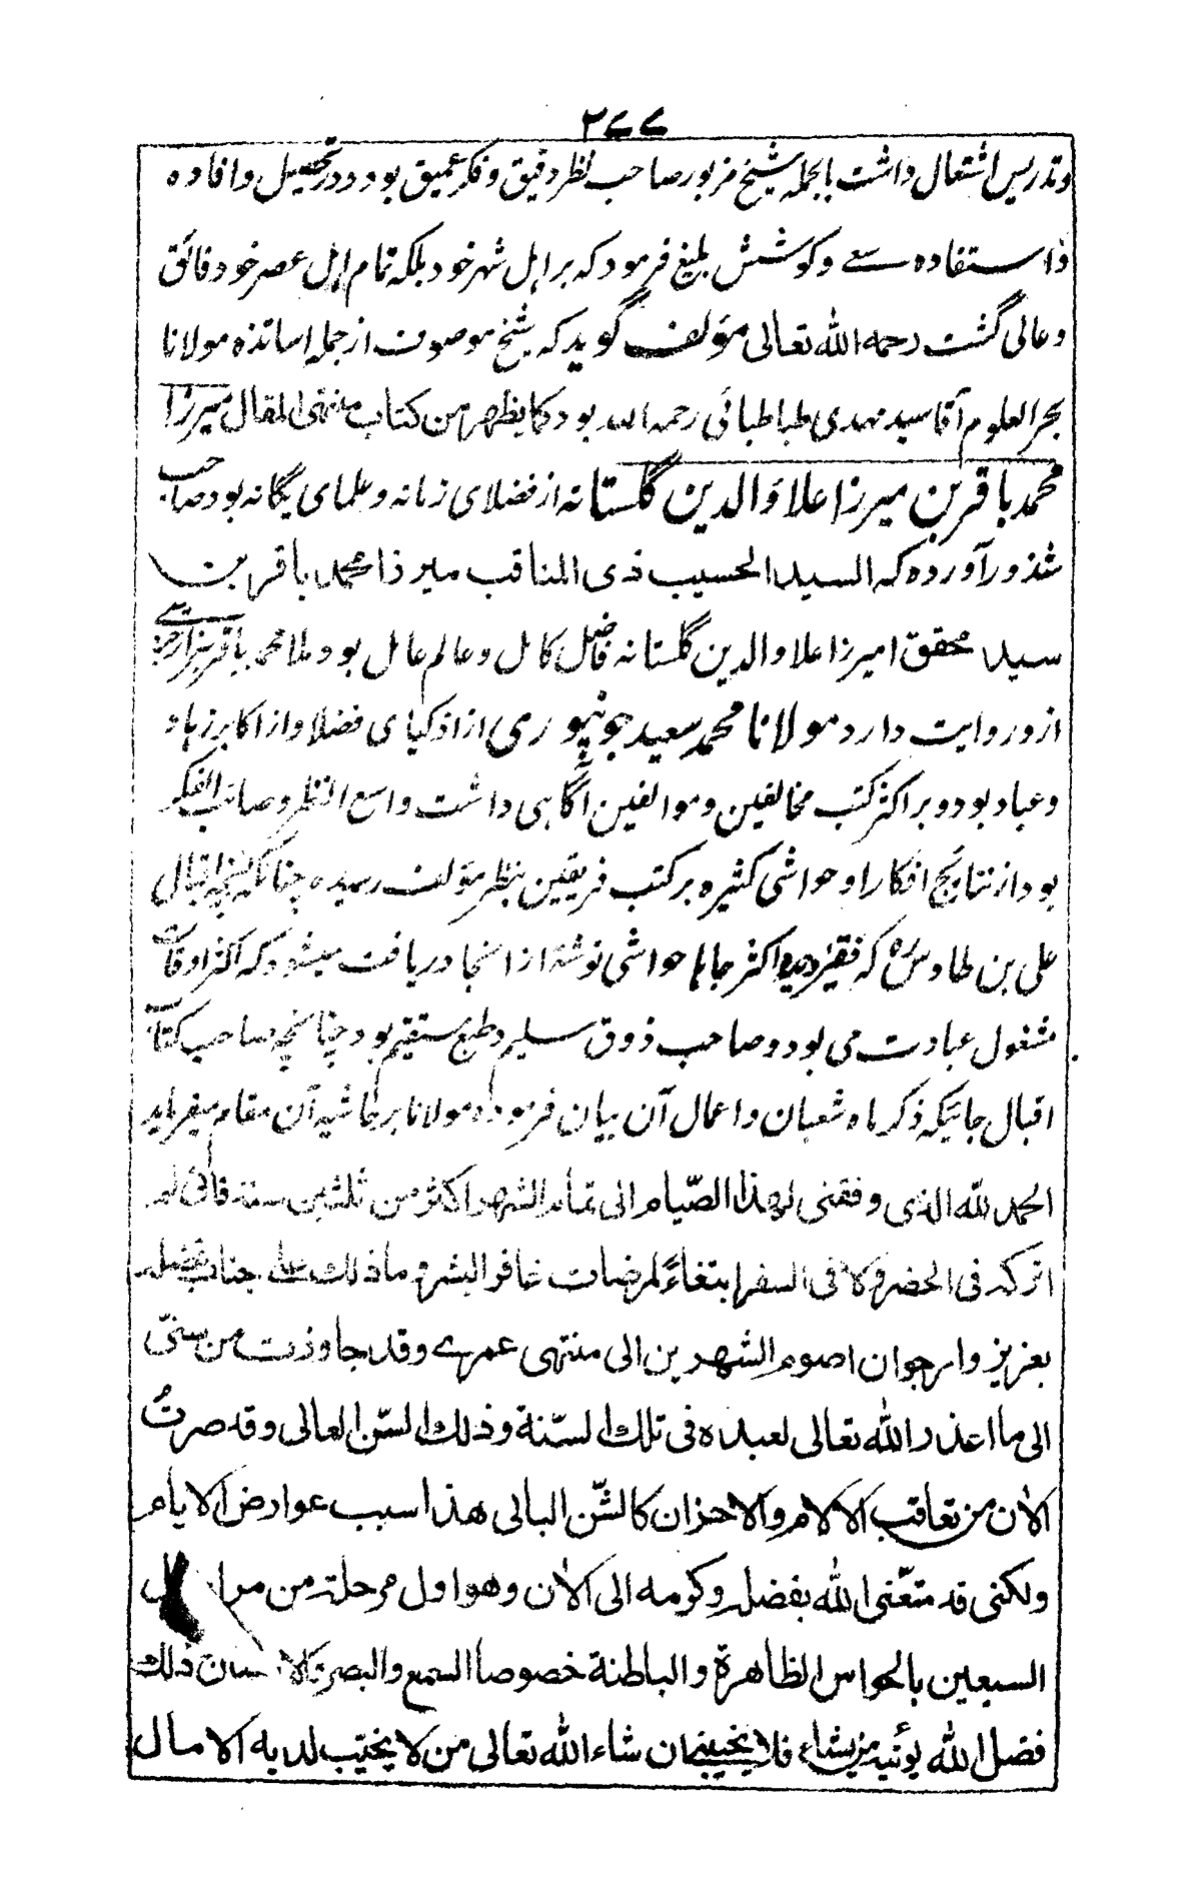 ۲۷۷
وتدریس اشتغال داشت بالجملہ شیخ مزبور صاحب نظر دقیق و فکر عمیق بود و در تحصیل و افادہ
و استفادہ سعے و کوشش بلیغ فرمود کہ بر اہل شہر خود بلکہ تمام اہل عصر خود فائق
و عالی گشت رحمہ اللہ تعالی مؤلف گوید کہ شیخ موصوف از جملہ اساتذہ مولانا
بحر العلوم آقا سید مہدی طباطبائی رحمہ اللہ بود کما یظھر من کتاب منتھی المقال میرزا
محمد باقر بن میرزا علاؤ الدین گلستانہ از فضلای زمانہ و علمای یگانہ بود صاحب
شذور آوردہ کہ السید الحسیب ذی المناقب میرزا محمد باقر بن
سید محقق امیرزا علاوالدین گلستانہ فاضل کامل و عالم عامل بود ملا محمد باقر
ازو روایت دارد مولانا محمد سعید جونپوری از اذکیای فضلا و از اکابر زہاد
و عباد بود و بر اکثر کتب مخالفین و موالفین آگاہی داشت واسع النظر و صائب الفکر
بود از نتایج افکار او حواشی کثیرہ بر کتب فریقین بنظر مؤلف رسیدہ چنانکہ نسخہ اقبال
علی بن طاوس رہ کہ فقیر دیدہ اکثر جاہا حواشی نوشتہ از انجا دریافت میشود کہ اکثر اوقات
مشغول عبادت می بود و صاحب ذوق سلیم و طبع مستقیم بود چنانچہ صاحب کتاب
اقبال جائیکہ ذکر ماہ شعبان و اعمال آن بیان فرمودہ مولانا بر حاشیہ آن مقام میفرماید
الحمد للّٰہ الذی وفقنی لھذا الصّیام الی تمام الشھر اکثر من ثلثین سنۃ فانی لم
اترکہ فی الحضر ولا فی السفر ابتغاءً لمرضات غافر البشر وما ذلک علی جناب فضلہ
بعزیز وارجوان اصوم الشھرین الی منتھی عمرے وقد جاوزت من سنّی
الی ما اعذر اللّٰہ تعالی لعبدہ فی تلک السّنۃ وذلک السّن العالی وقد صرتُ
الاٰن من تعاقب الالام والاحزان کالشّن البالی ھذا سبب عوارض الایام
ولکنی قد متعّنی اللّٰہ بفضلہ وکرمہ الی الاٰن وھو اول مرحلۃ من
السبعین بالحواس الظاھرۃ والباطنۃ خصوصا السمع والبصر ذلک
فضل اللّٰہ یوتیہ من یشاء فلا ان شاء اللّٰہ تعالی من لا یخیّب لدیہ الامال